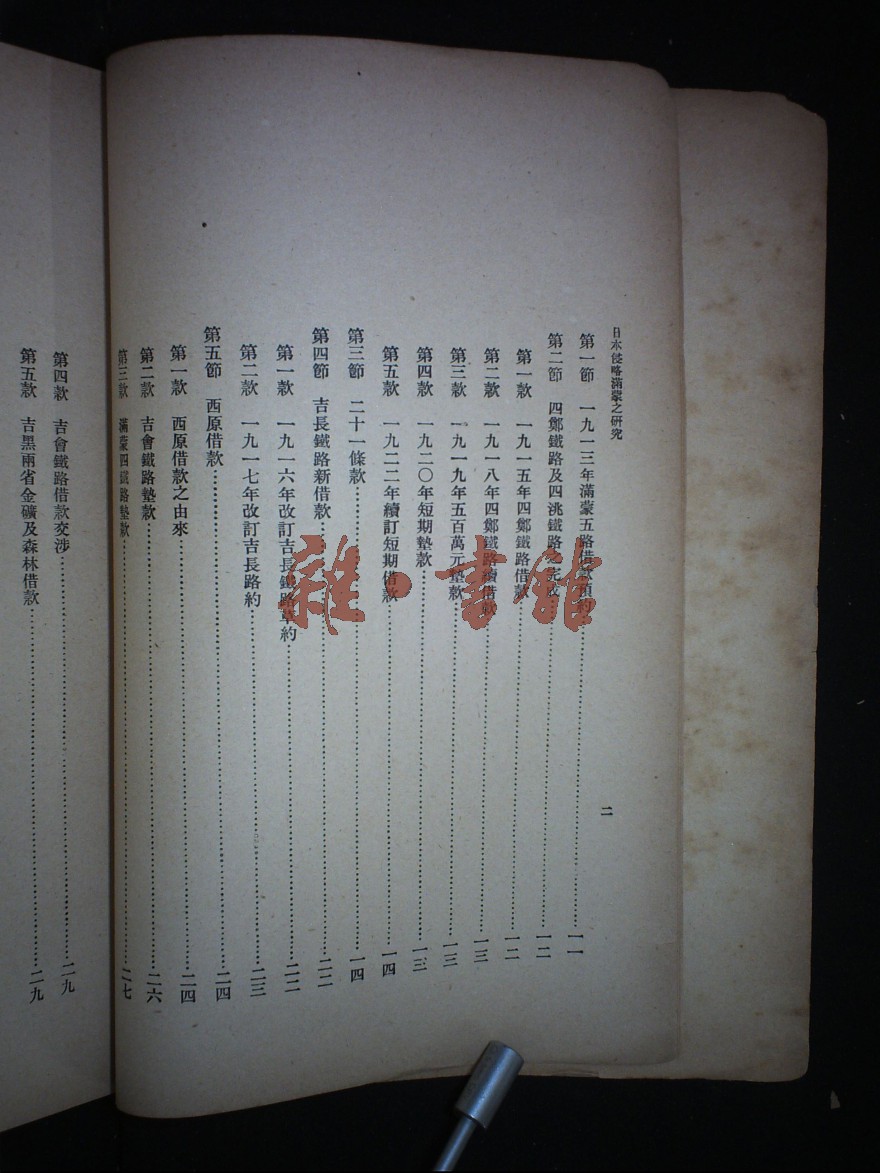 日本侵略滿蒙之研究
第一節 一九一三年滿蒙五路借款預約 一一
第二節 四鄭鐵路及四洮鐵路之 一二
第一款 一九一五年四鄭鐵路借款 一二
第二款 一九一八年四鄭鐵路續借款 一三
第三款 一九一九年五百萬元墊款 一三
第四款 一九二〇年短期墊款 一三
第五款 一九二二年續訂短期借款 一四
第三節 二十一條款 一四
第四節 吉長鐵路新借款 二二
第一款 一九一六年改訂吉長鐵路草約 二二
第二款 一九一七年改訂吉長路約 二三
第五節 西原借款 二四
第一款 西原借款之由來 二四
第二款 吉會鐵路墊款 二六
第三款 滿蒙四鐵路墊款 二七
二
第四款 吉會鐵路借款交涉 二九
第五款 吉黑兩省金礦及森林借款 二九
雜·書館